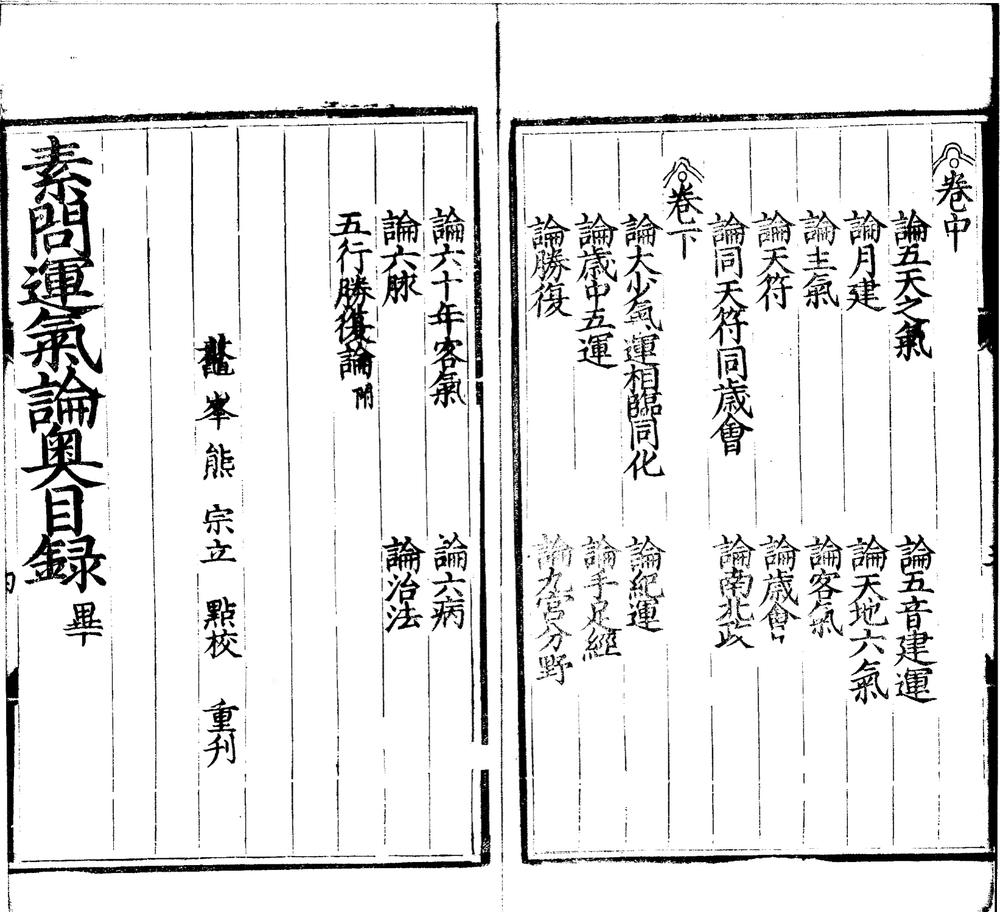 卷中
論五天之氣 論五音建運
論月建 論天地六氣
論主氣 論客氣
論天符 論歲會
論同天符同歲會 論南北政
卷下
論大少氣運相臨同化 論紀運
論歲中五運 論手足經
論勝復 論九宮分野
論六十年客氣 論六病
論六脉 論治法
五行勝復論附
鼇峯熊宗立 點校 重刋
素問運氣論奥目録畢